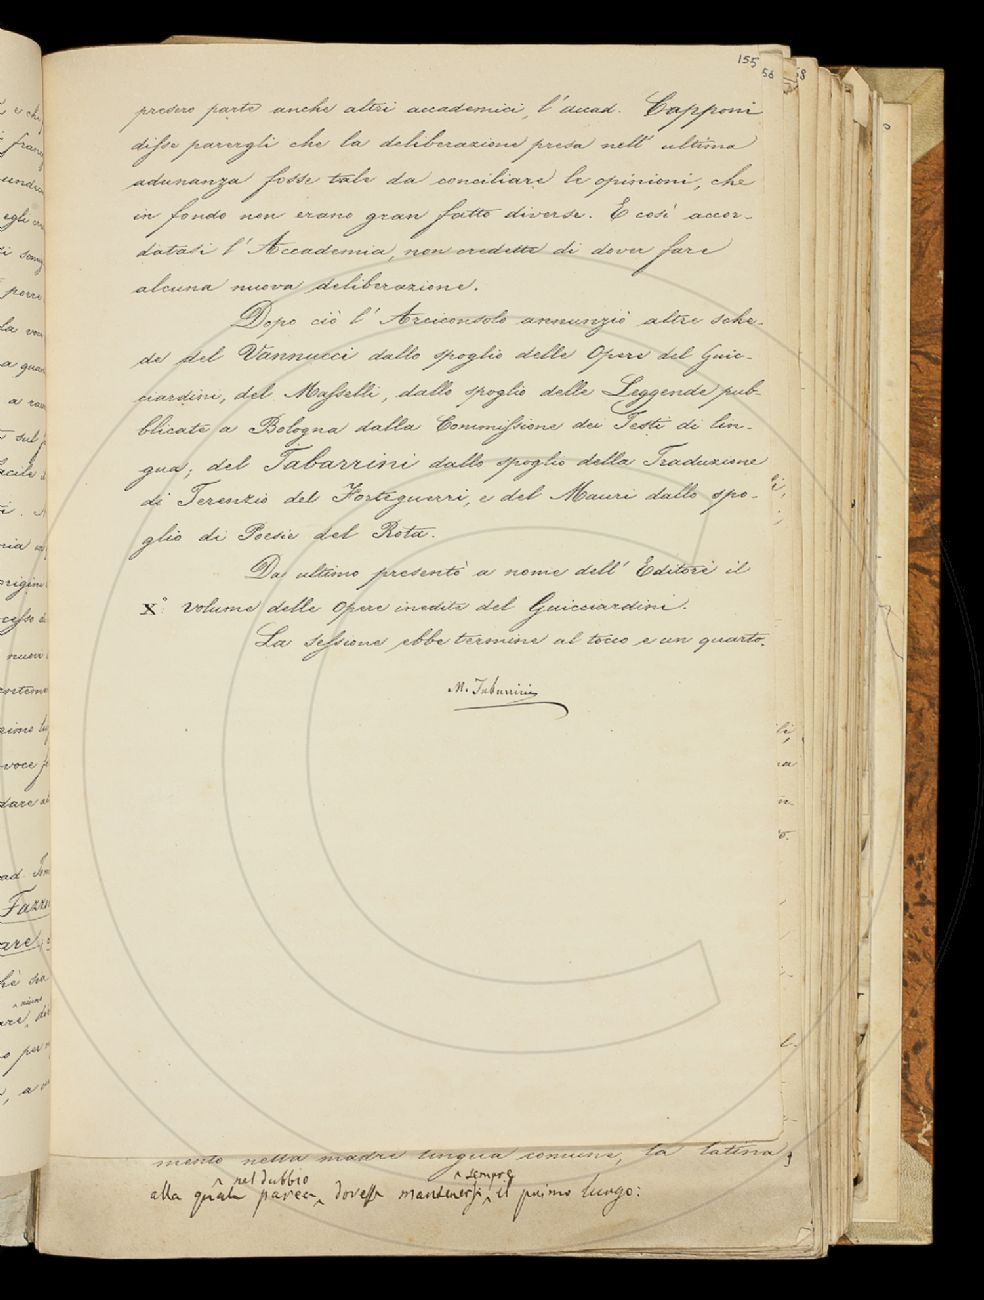 155
56
58
presero parte anche altri accademici, l'accad. Capponi
disse parergli che la deliberazione presa nell'ultima
adunanza fosse tale da conciliare le opinioni, che
in fondo non erano gran fatto diverse. E così accor-
datasi l'Accademia, non credette di dover fare
alcuna nuova deliberazione.
Dopo ciò l'Arciconsolo annunziò altre sche-
de del Vannucci dallo spoglio delle Opere del Guic-
ciardini, del Masselli, dallo spoglio delle Leggende pub-
blicate a Bologna dalla Commissione dei Testi di lin-
gua; del Tabarrini dallo spoglio della Traduzione
di Terenzio del Forteguerri, e del Mauri dallo spo-
glio di Poesie del Rota.
Da ultimo presentò a nome dell'Editore il
X° volume delle Opere inedite del Guicciardini.
La sessione ebbe termine al tocco e un quarto.
M. Tabarrini
mento nella madre lingua comune, la latina,
nel dubbio sempre
alla quale parea dovesse mantenersi il primo luogo: